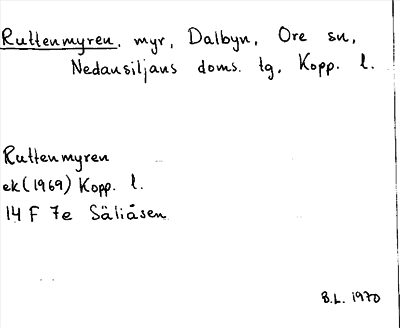 Ruttenmyren, myr, Dalbyn, Ore sn,
Nedansiljans doms. tg, Kopp. l.
Ruttenmyren
ek (1969) Kopp. l.
14 F 7e Säliåsen
B.L. 1970